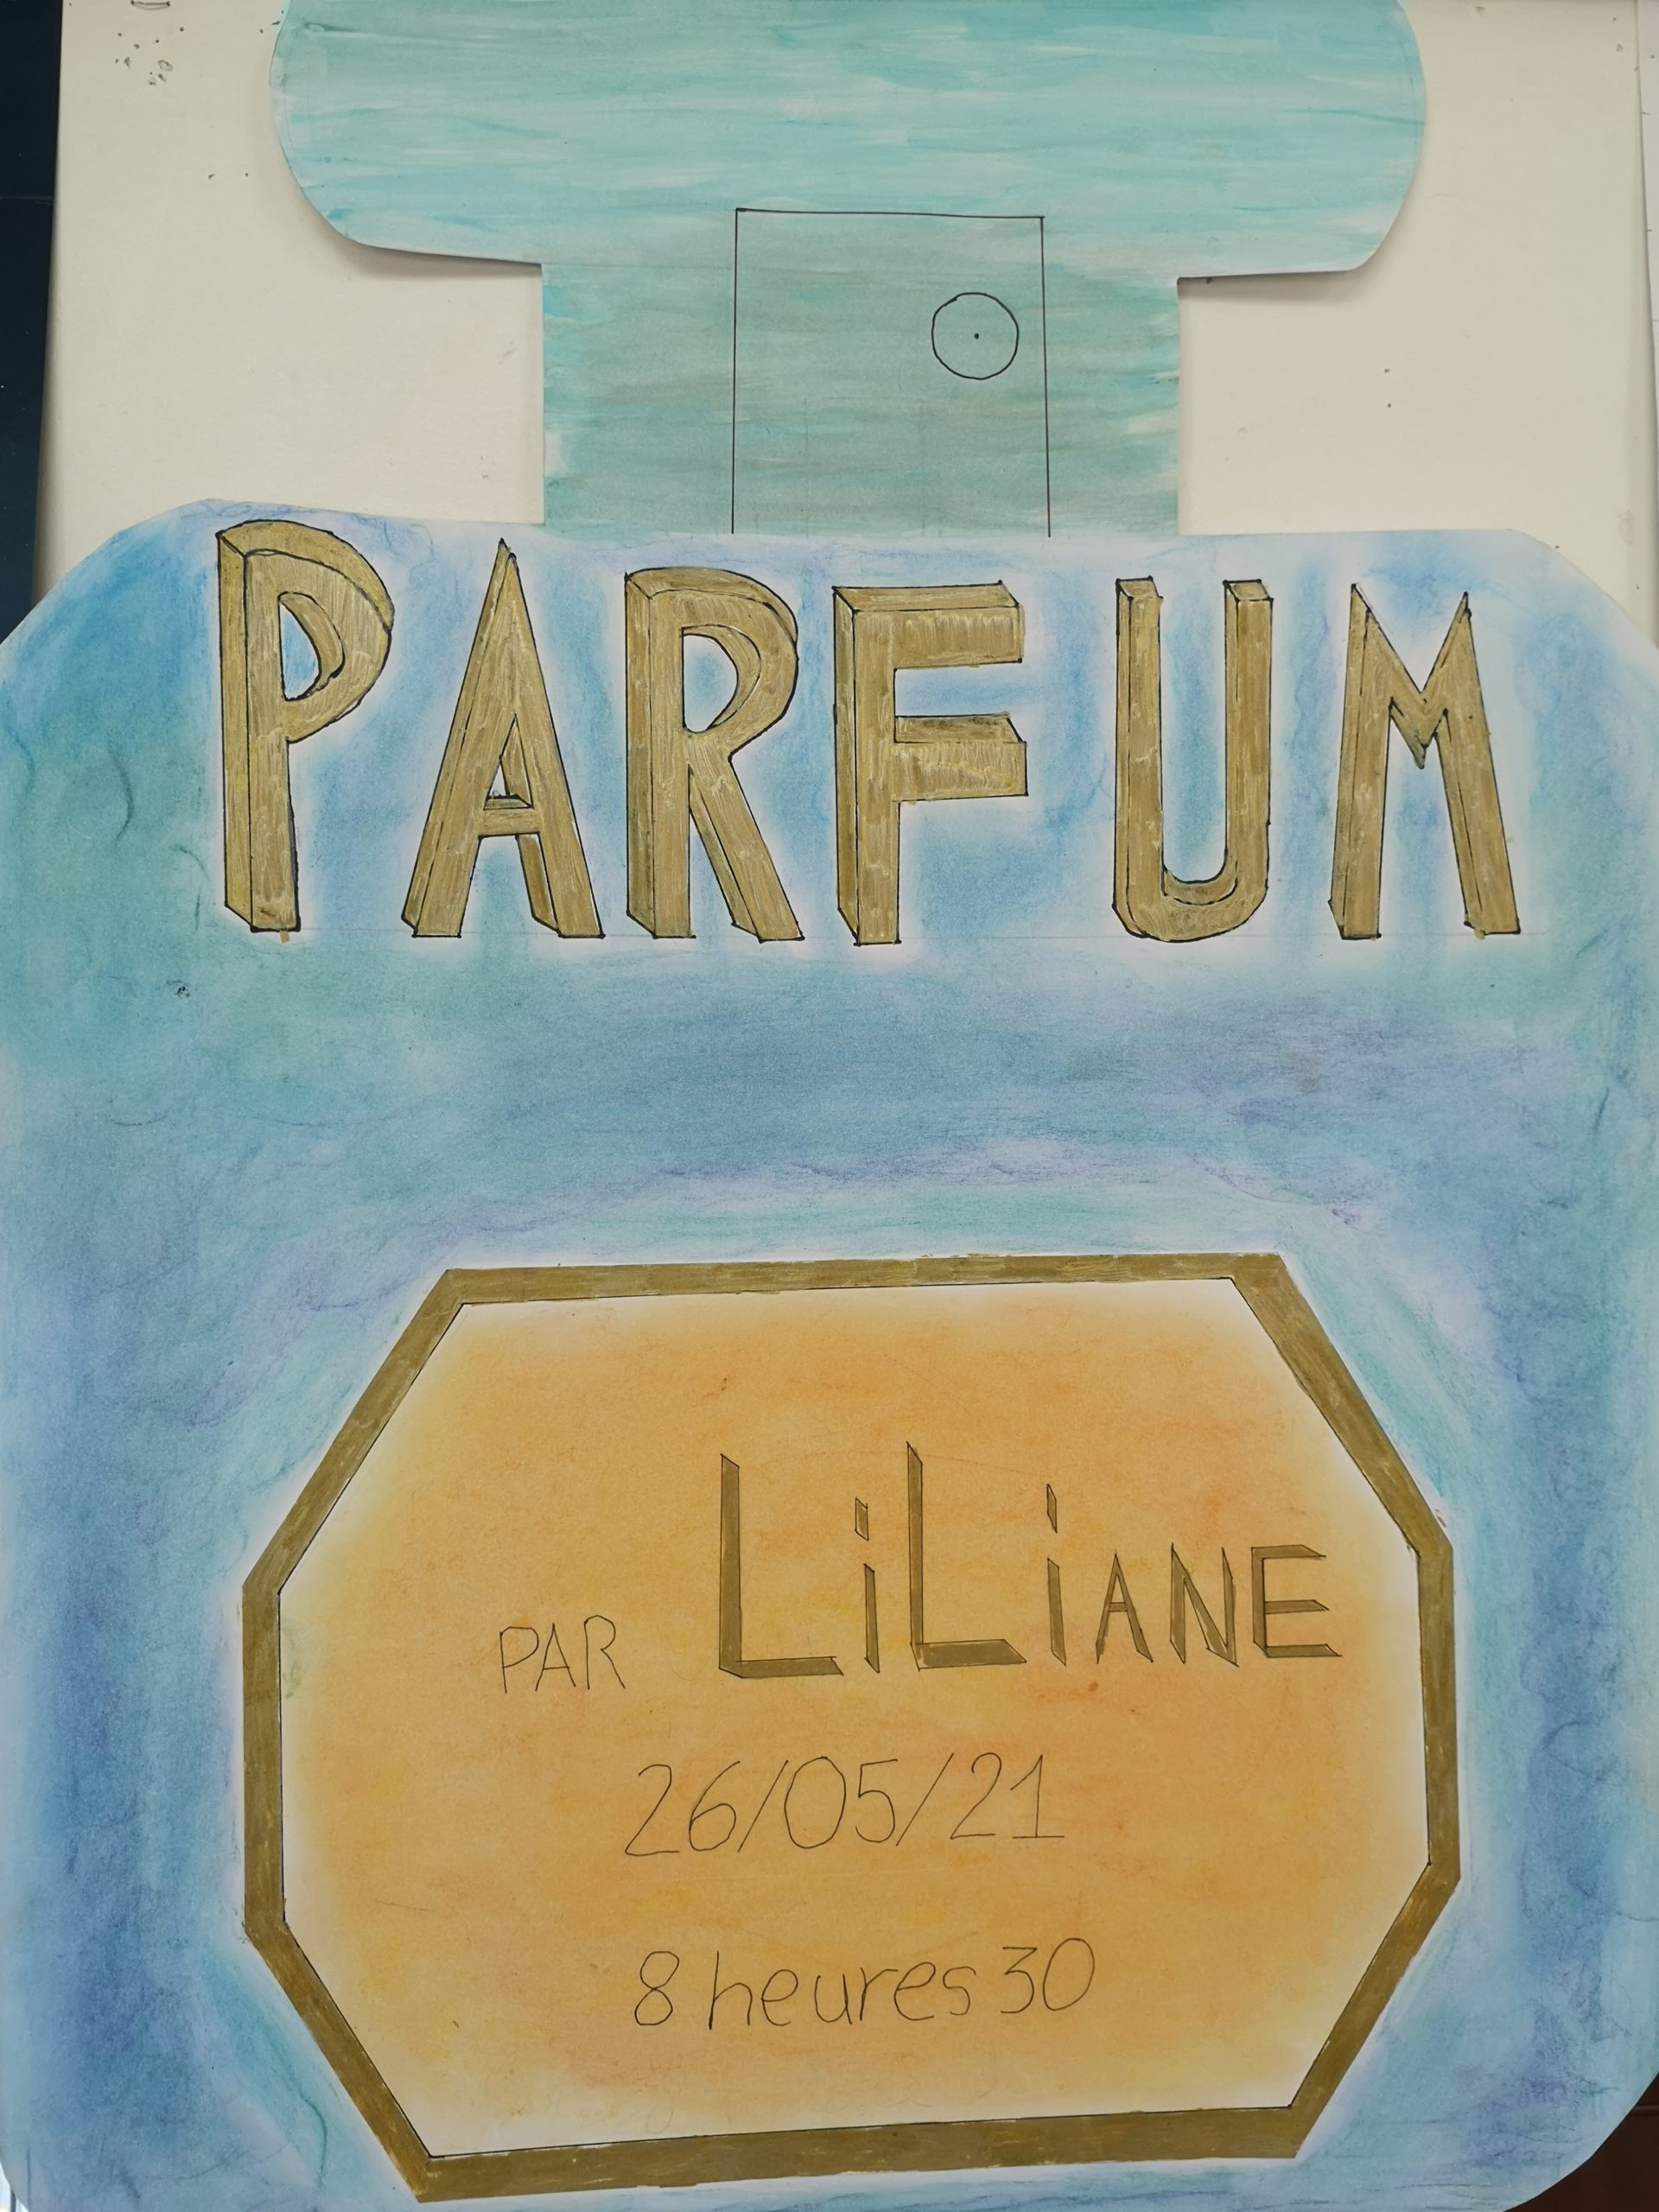 PARFUM
PAR LiLiANE
26/05/21
8 heures 30